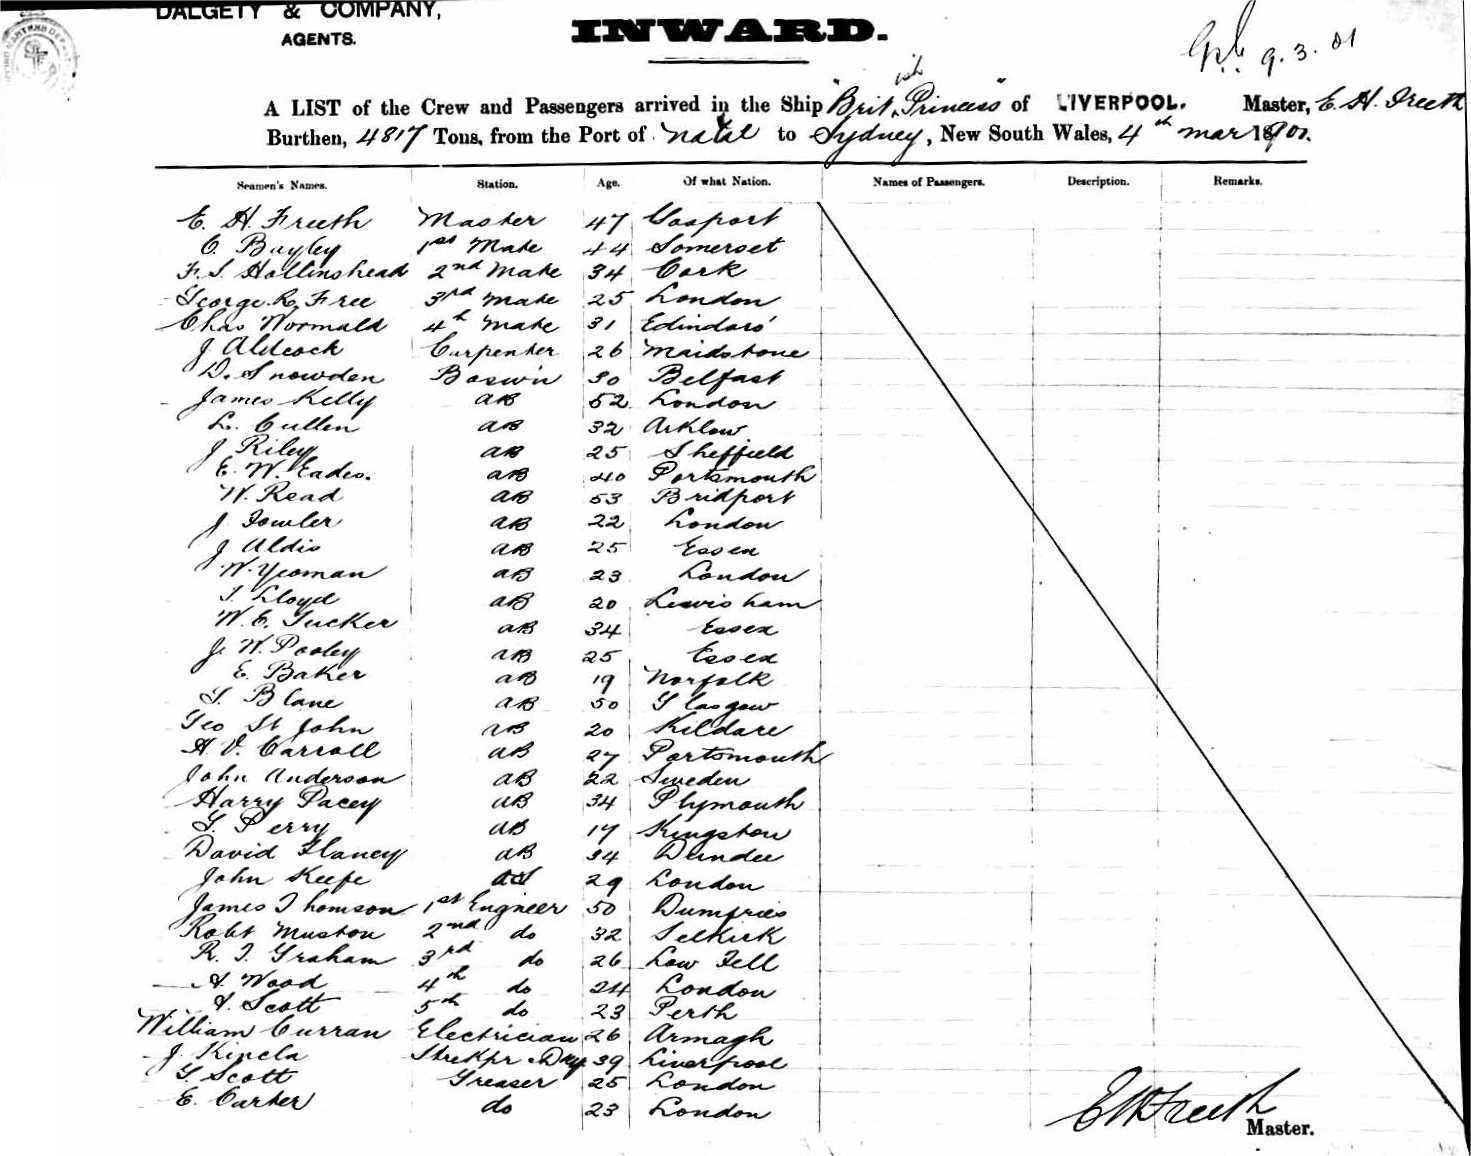 DALGETY & COMPANY,
AGENTS.
INWARD.
9.3.01
A LIST of the Crew and Passengers arrived in the Ship "British Princess" of LIVERPOOL. Master, E. H. Freeth
Burthen, 4817 Tons, from the Port of Natal to Sydney, New South Wales, 4th Mar 1901.
Seamen's Names. Station. Age. Of what Nation. Names of Passengers. Description. Remarks.
E. H. Freeth Master 47 Gosport
C. Bayley 1st Mate 44 Somerset
F. S. Hollinshead 2nd Mate 34 Cork
George R. Free 3rd Mate 25 London
Chas Wormald 4th Mate 31 Edinboro'
J Aldcock Carpenter 26 Maidstone
D. Snowden Bosw'n 30 Belfast
James Kelly AB 52 London
L. Cullen AB 32 Arklow
J Riley AB 25 Sheffield
E. W. Eades. AB 40 Portsmouth
W. Read AB 53 Bridport
J Fowler AB 22 London
J Aldis AB 25 Essex
W. Yeoman AB 23 London
T. Lloyd AB 20 Lewisham
W. E. Tucker AB 34 Essex
J. W. Pooley AB 25 Essex
E. Baker AB 19 Norfolk
T. Blane AB 50 Glasgow
Geo St John AB 20 Kildare
A. V. Carroll AB 27 Portsmouth
John Anderson AB 22 Sweden
Harry Pacey AB 34 Plymouth
G. Perry AB 17 Kingston
David Flaney AB 34 Dundee
John Keefe 29 London
James Thomson 1st Engneer 50 Dumfries
Robt Muston 2nd do 32 Selkirk
R. T. Graham 3rd do 26 Low Fell
A. Wood 4th do 24 London
A. Scott 5th do 23 Perth
William Curran Electrician 26 Armagh
J. Kinela Strekpr & Dkey 39 Liverpool
G. Scott Greaser 25 London
E. Carter do 23 London
E H Freeth
Master.